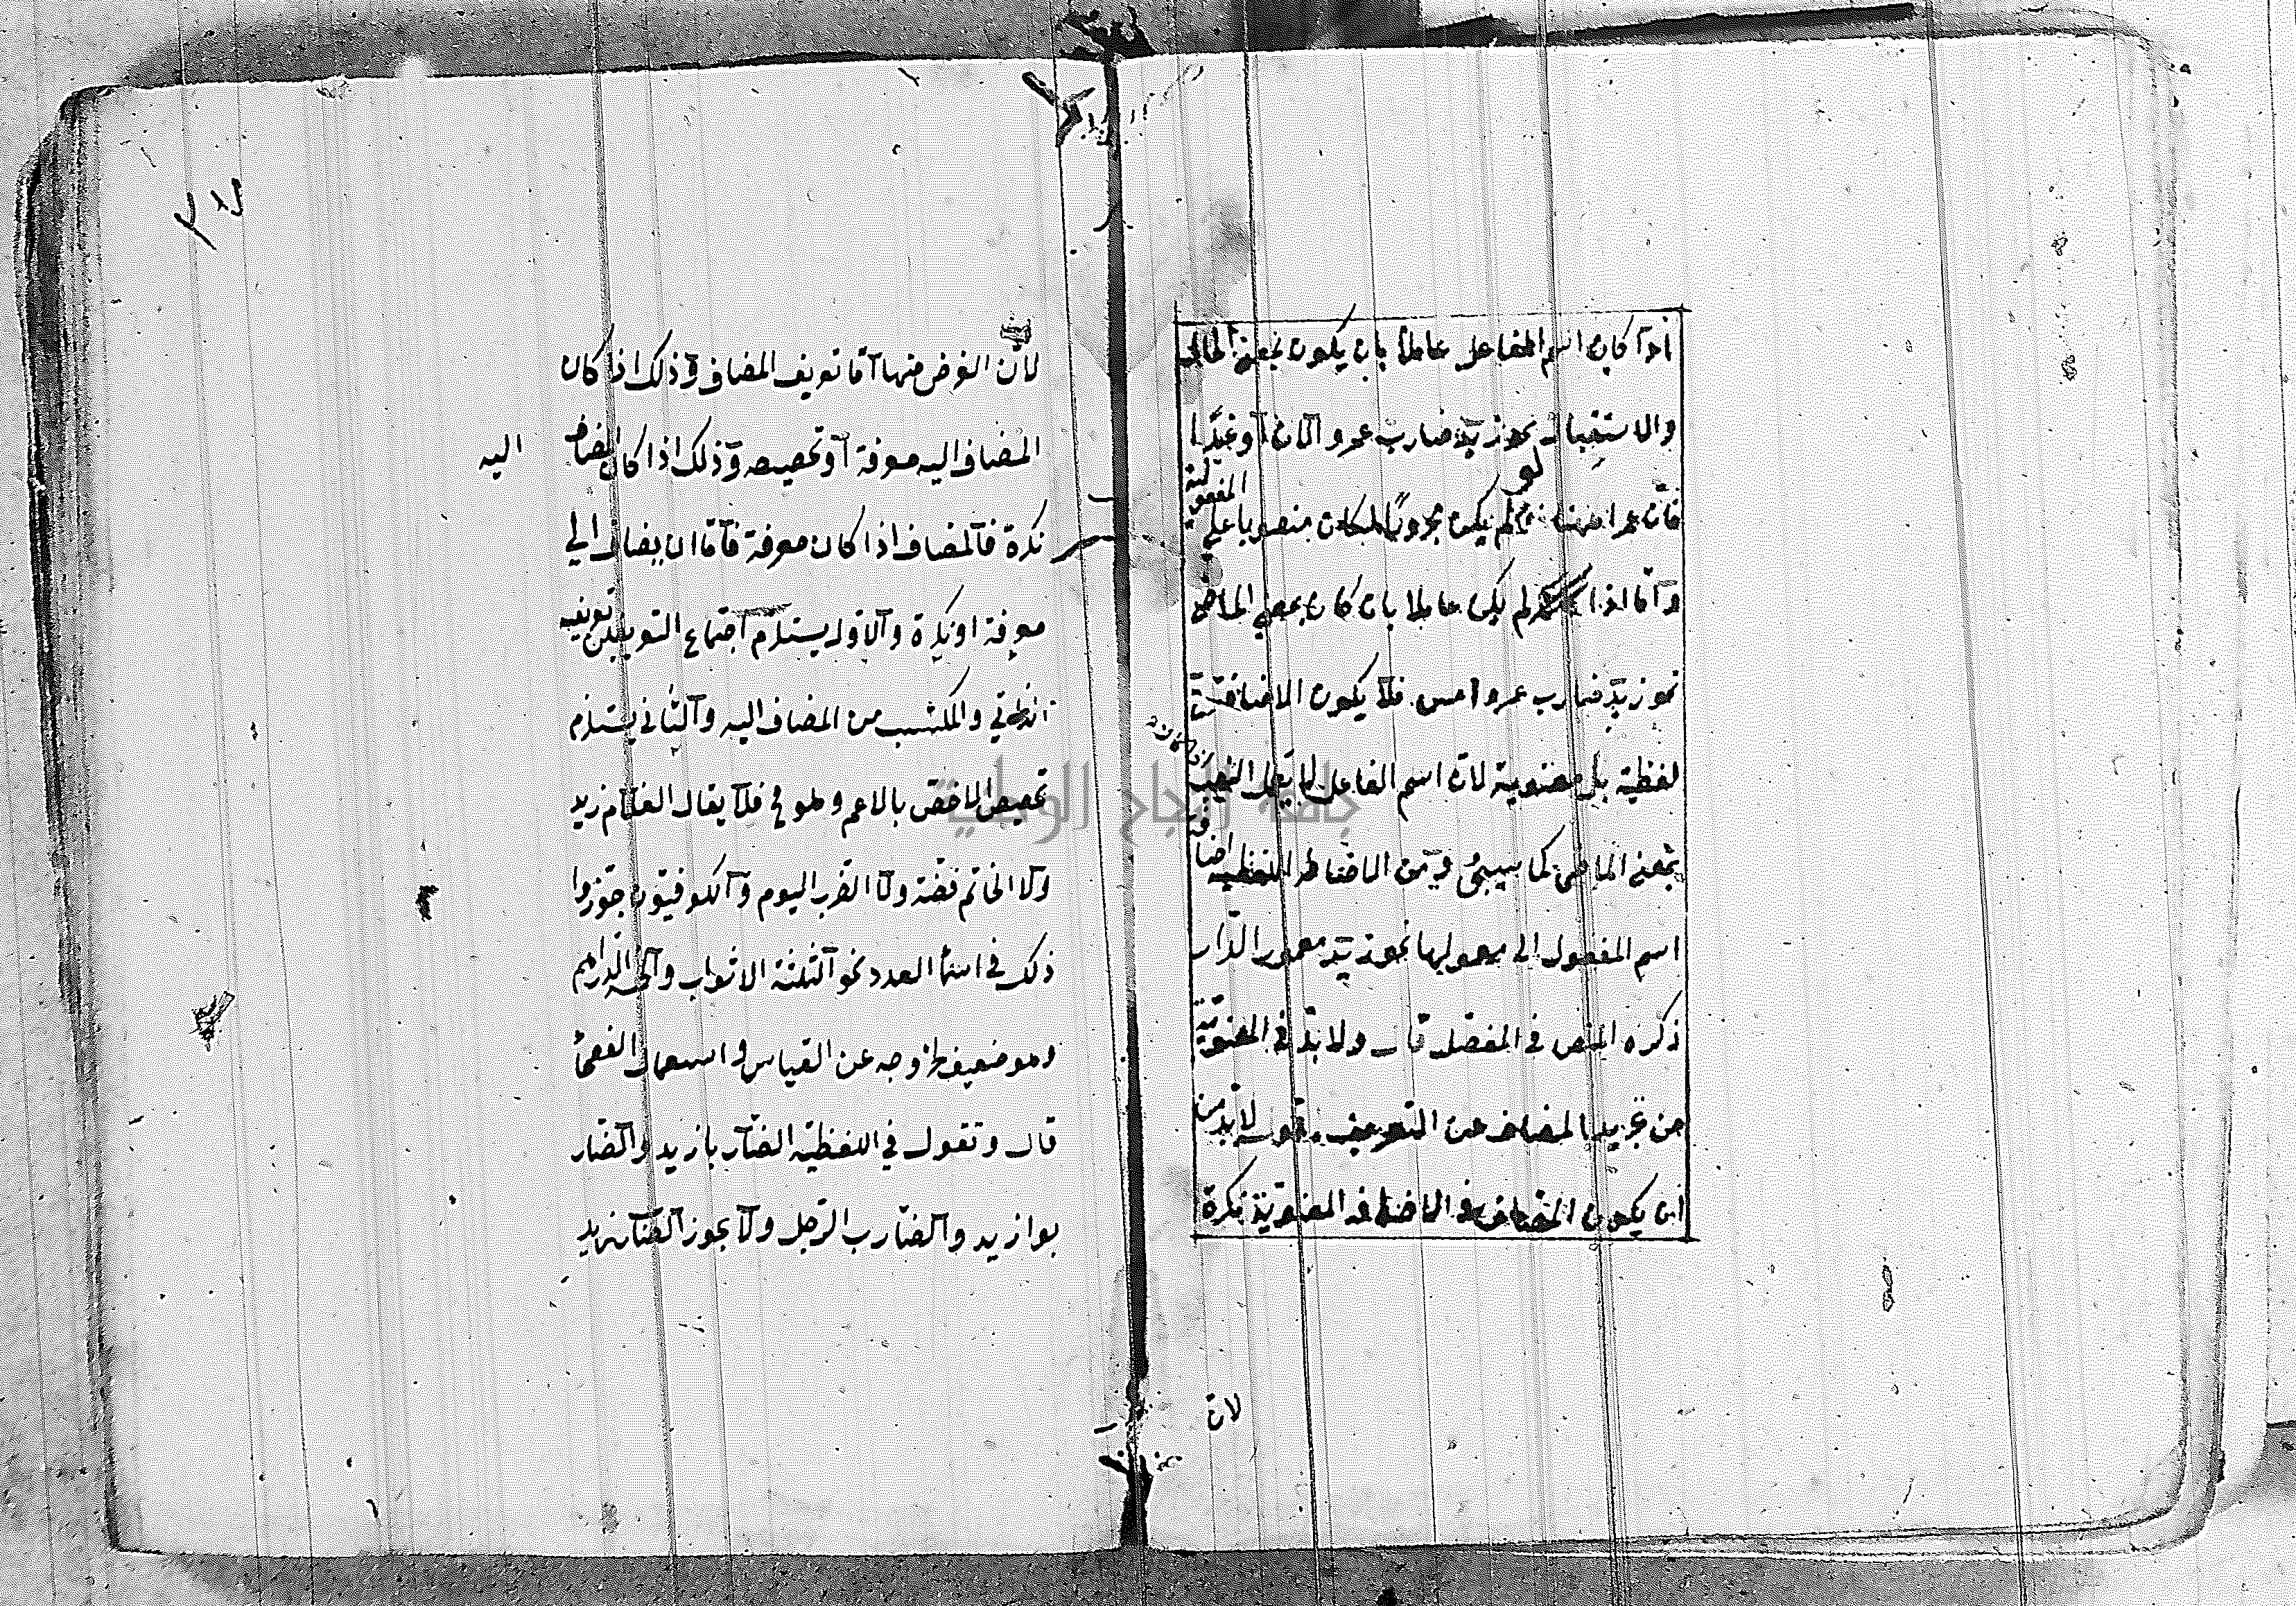 اذا كان اسم الفاعل عاملا بان يكون بمعنى الحال
والاستقبال نحو زيد ضارب عمرو الآن او غدًا
فان عمرا ههنا لو لم يكن مجرورا لكان منصوبا على المفعولية
وامّا اذا لم يكن عاملا بان كان بمعنى الماضى
نحو زيد ضارب عمرو امس فلا يكون الاضافة
لفظية بل معنوية لان اسم الفاعل لا يعمل النصب اذا كان
بمعنى الماضى كما سيجئ ومن الاضافة اللفظية اضافة
اسم المفعول الى معمولها نحو زيد معمور الدار
ذكره المص فى المفصل قال ولا بد فى المعنوية
من تجريد المضاف عن التعريف اقول لا بد من
ان يكون المضاف فى الاضافة المعنوية نكرة
لان
لانّ الغرض منها امّا تعريف المضاف وذلك اذا كان
المضاف اليه معرفة او تخصيصه وذلك اذا كان المضاف اليه
نكرة فالمضاف اذا كان معرفة فامّا ان يضاف الى
معرفة او نكرة والاول يستلزم اجتماع التعريفين تعريفه
الذاتي والمكتسب من المضاف اليه والثاني يستلزم
تخصيص الاخص بالاعم وهو مح فلا يقال الغلام زيد
ولا الخاتم فضة ولا الضرب اليوم والكوفيون جوزوا
ذلك فى اسماء العدد نحو الثلثة الاثواب والدراهم
وهو ضعيف لخروجه عن القياس واستعمال الفصحاء
قال وتقول في اللفظية الضاربا زيد والضار
بوا زيد والضارب الرجل ولا يجوز الضارب زيد
جامعة النجاح الوطنية